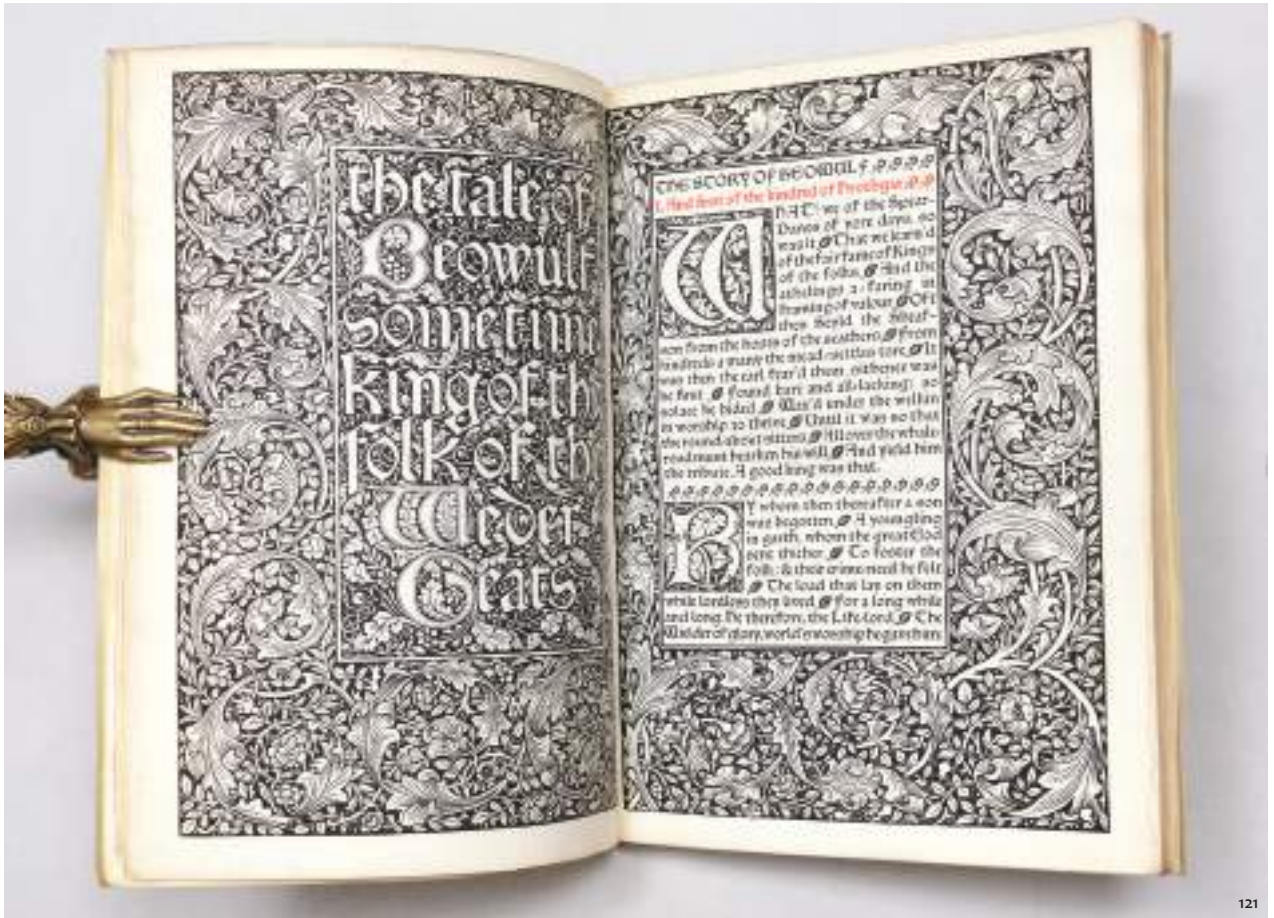 the tale of
Beowulf
sometim
king of th
folk of th
Weder
Geats
THE STORY OF BEOWULF
I. And first of the kindred of Hrothgar.
WHAT! we of the Spear-
Danes of yore days, so
was it That we learn'd
of the fair fame of kings
of the folks And the
athelings a-faring in
framing of valour. Oft
then Scyld the Sheaf-
son from the hosts of the scathers, From
kindreds a many the mead-settles tore; It
was then the earl fear'd them, sithence was
he first Found bare and all-lacking; so
solace he bided, Wax'd under the welkin
in worship to thrive, Until it was so that
the round-about sitters All over the whale-
road must hearken his will And yield him
the tribute. A good king was that.
BY whom then thereafter a son
was begotten, A youngling
in garth, whom the great God
sent thither To foster the
folk; & their crime-need he felt
The load that lay on them
while lordless they lived For a long while
and long. He therefore, the Life-lord, The
Wielder of glory, world's worship he gave him:
121